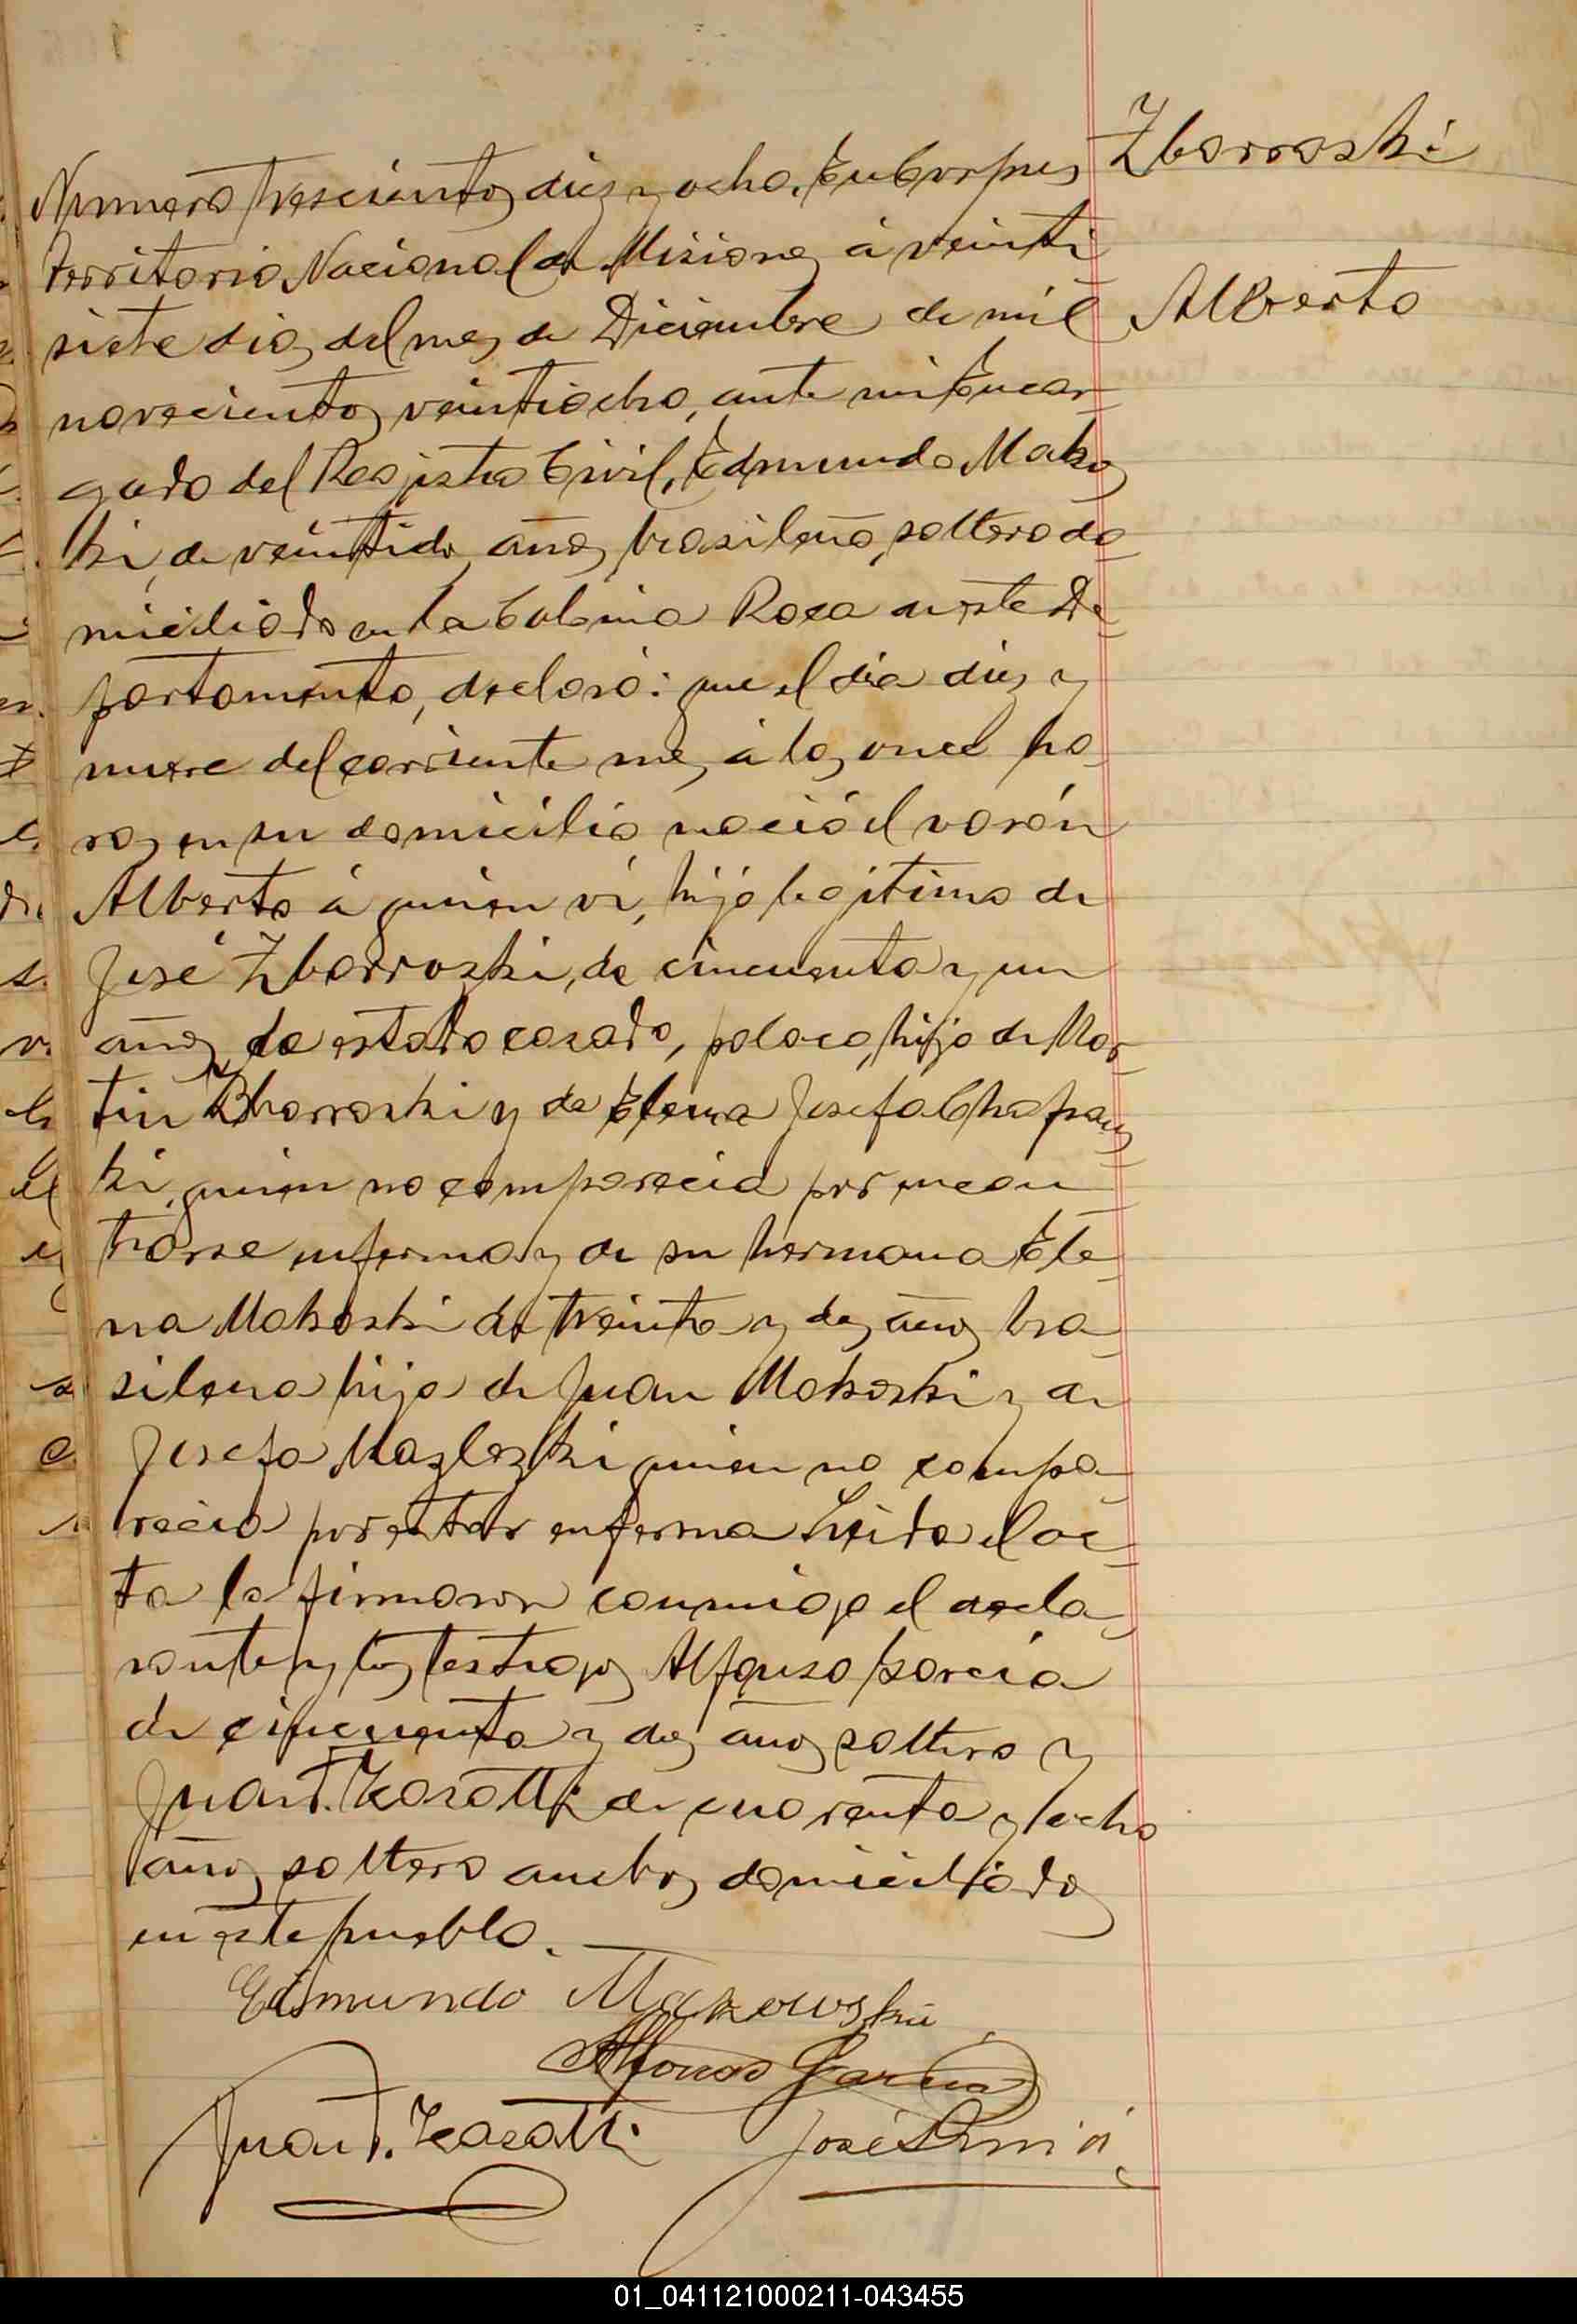 Zborroski
Alberto
Numero trescientos diez y ocho. En Corpus
Territorio Nacional de Misiones á veinti
siete dias del mes de Diciembre de mil
novecientos veintiocho, ante mi Encar
gado del Rejistro Civil, Edmundo Makos
ki, de veintidos años, brasileño, soltero do
miciliado en la Colonia Roca de este De
partamento, declaró: que el dia diez y
nueve del corriente mes á las once ho
ras en su domicilio nació el varón
Alberto á quien vi, hijo legitimo de
José Zborroski, de cincuenta y un
años, de estado casado, polaco, hijo de Mar
tin Zborroski y de Elena Josefa
ki, quien no comparecia por encon
trarse enfermo y de su hermana Ele
na Makoski de treinta y dos años bra
silena hija de Juan Makoski y de
Josefa quien no compa
recio por estar enferma Leida el ac
ta la firmaron conmigo el decla
rante y los testigos Alfonso Garcia
de cincuenta y dos años soltero y
Juan F. de cuarenta y ocho
años soltero ambos domiciliados
en este pueblo.
Edmundo Makowski
Alfonso Garcia
Juan F. José
01_041121000211-043455